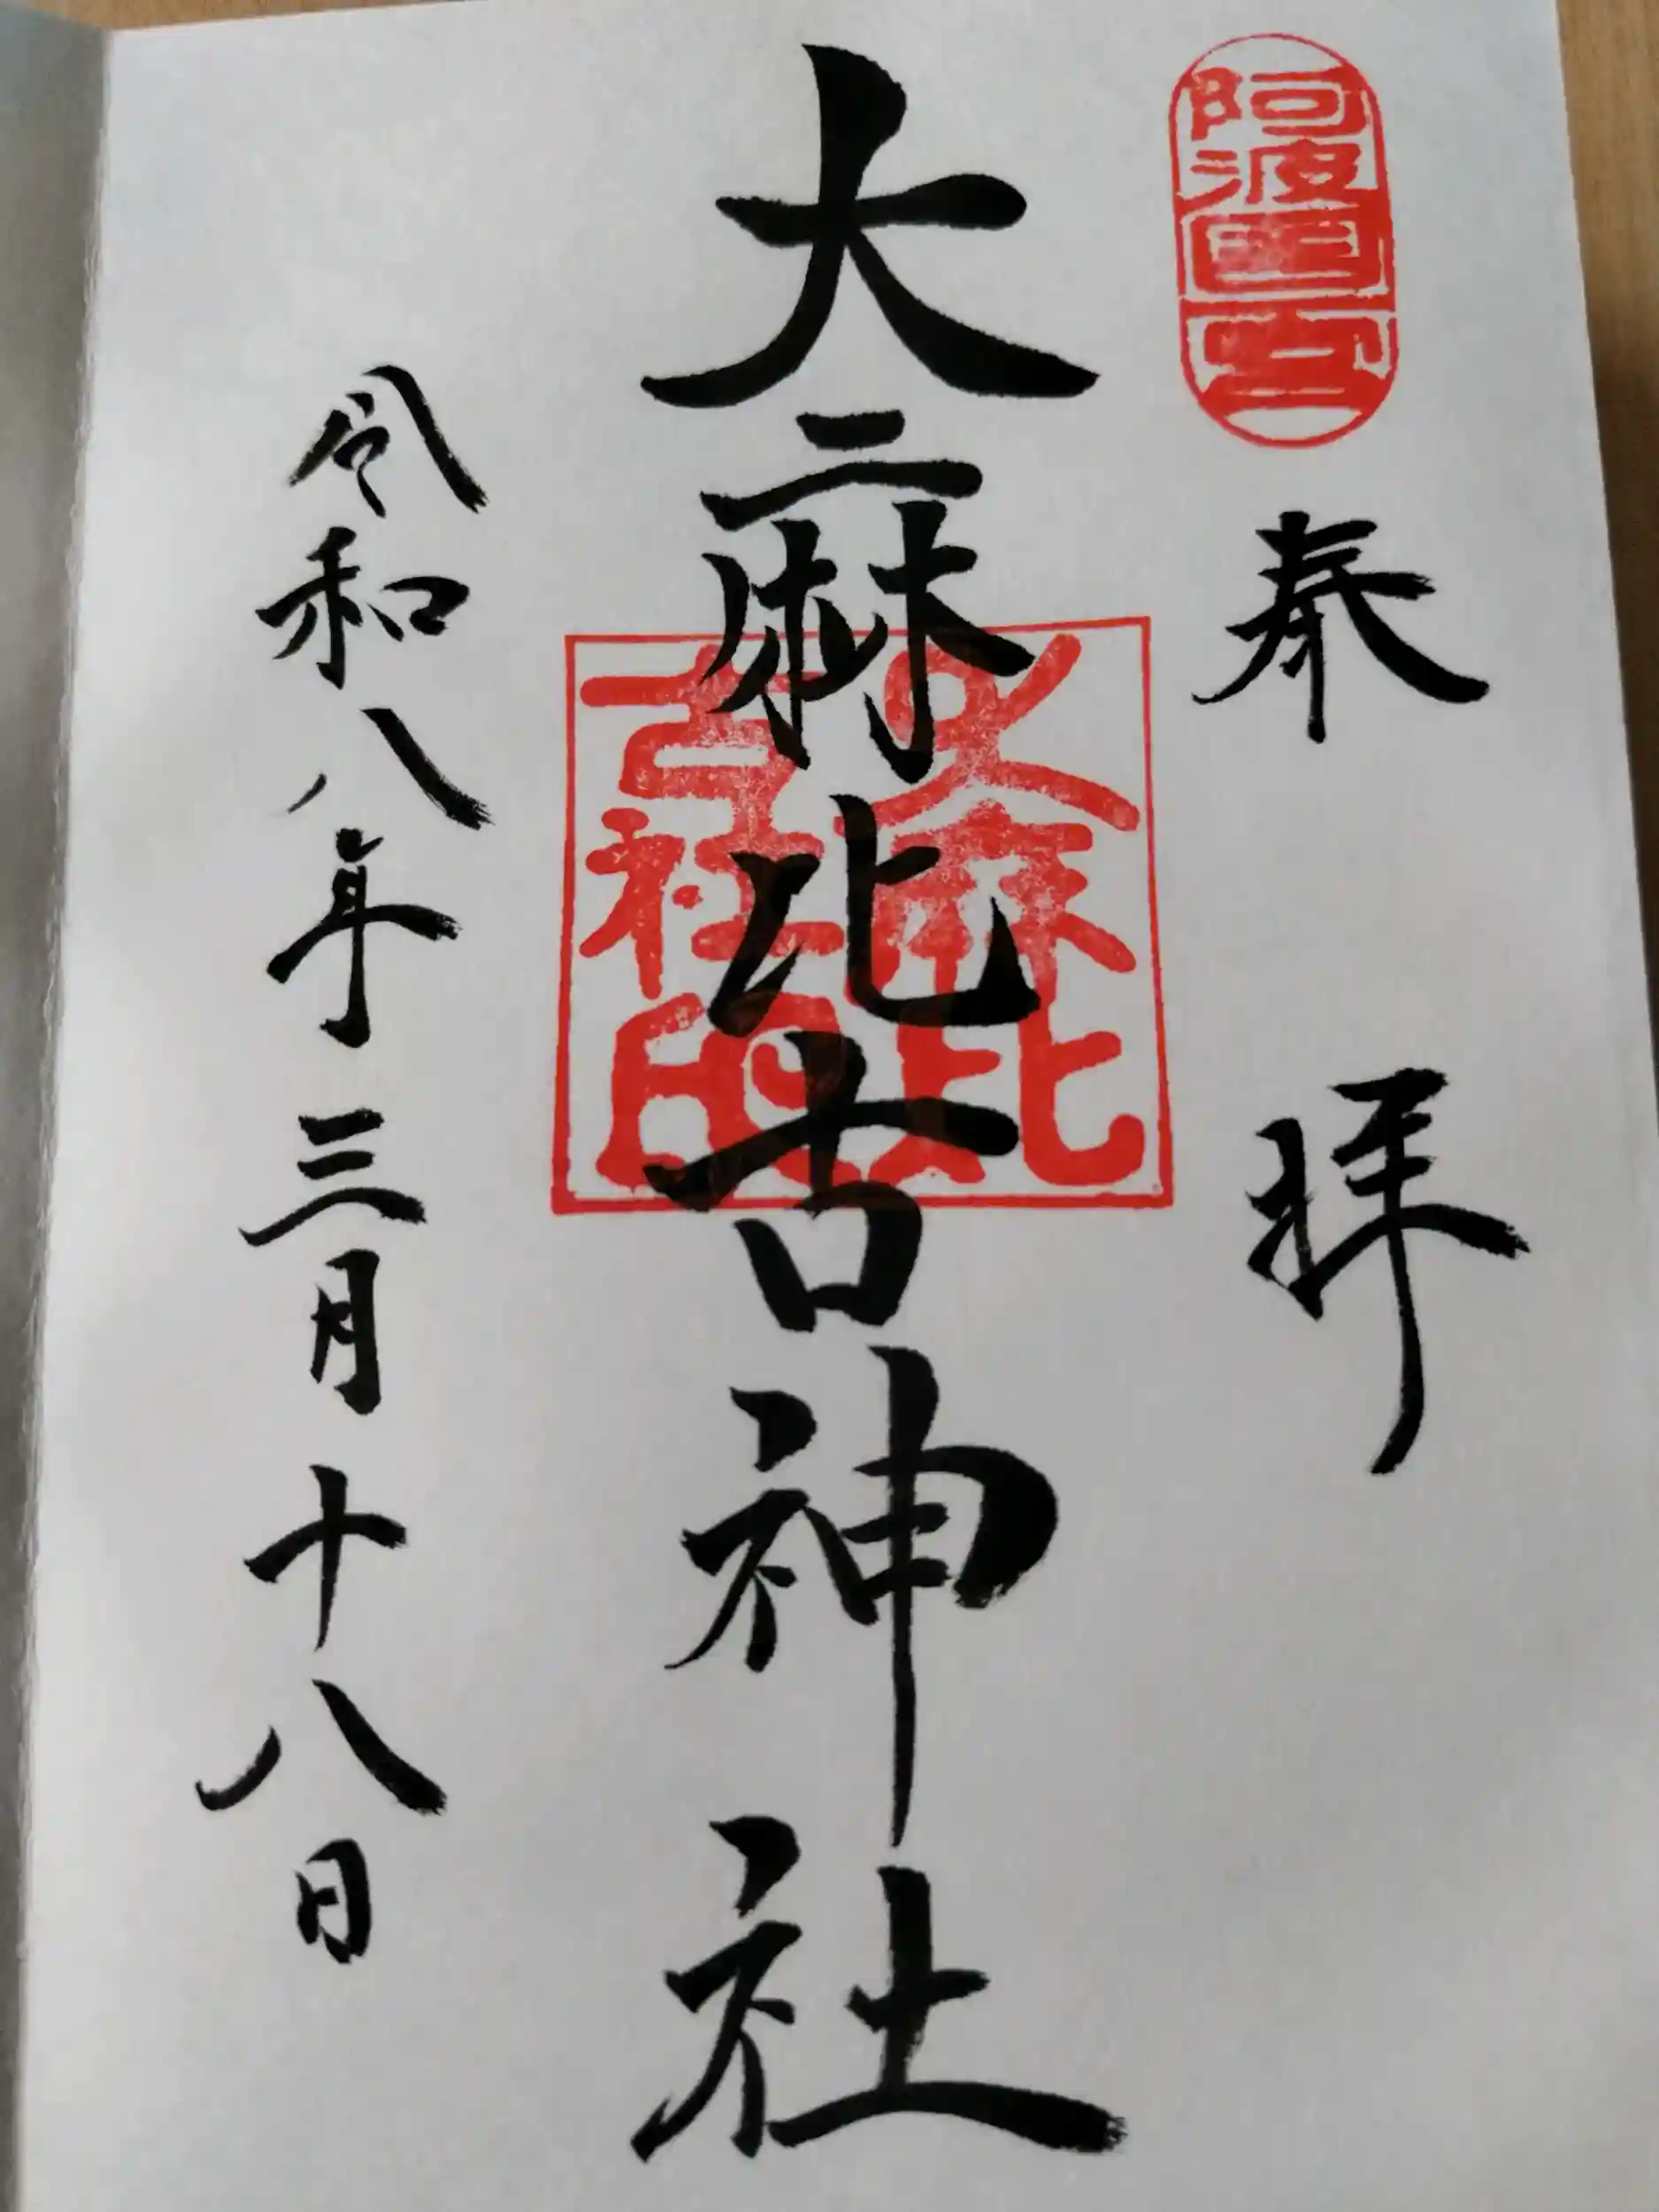 阿波國一宮
奉拝
大麻比古神社
大麻比
古社印
令和八年三月十八日